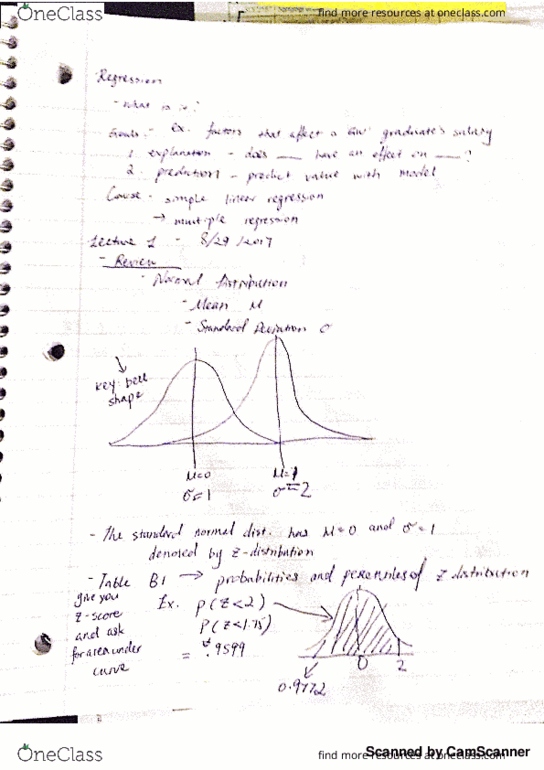 OneClass
find more resources at oneclass.com
Regression
- What is it?
Goals - Ex. factors that affect a GW graduate's salary
1. explanation - does ___ have an effect on ___?
2. prediction - predict value with model
Course - simple linear regression
→ multiple regression
Lecture 1 - 8/29/2017
- Review
- Normal Distribution
- Mean M
- Standard Deviation σ
key: bell
shape
M=0
σ=1
M=1
σ=2
- The standard normal dist. has M=0 and σ=1
denoted by z-distribution
- Table B1 → probabilities and percentiles of z distribution
give you
z-score
and ask
for area under
curve
Ex. P(Z<2)
P(Z<1.75)
= .9599
0
2
0.9772
OneClass
find more resources at oneclass.com
Scanned by CamScanner